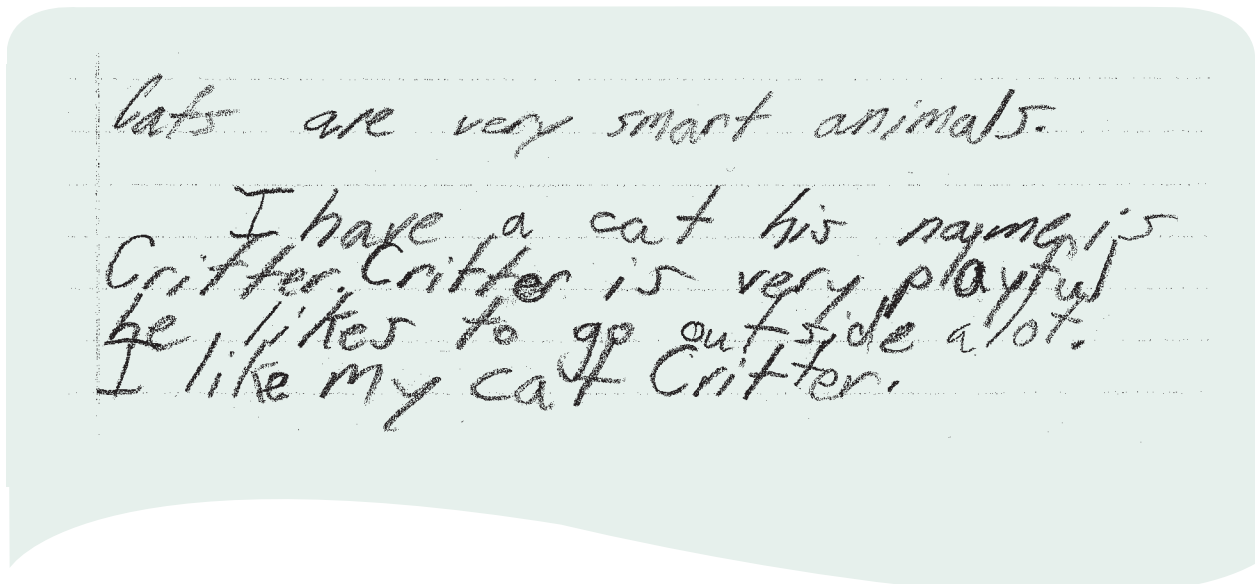 Cats are very smart animals.
I have a cat his name is
Critter. Critter is very playful
he likes to go outside a lot.
I like my cat Critter.